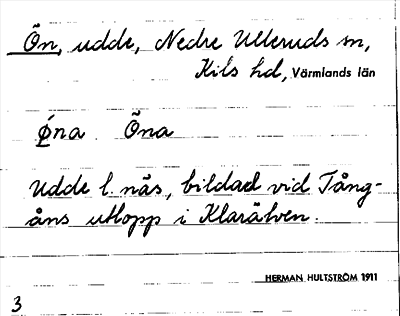 Ön, udde, Nedre Ulleruds sn,
Kils hd, Värmlands län
Øna Öna
Udde l. näs, bildad vid Tång-
åns utlopp i Klarälven.
HERMAN HULTSTRÖM 1911
3